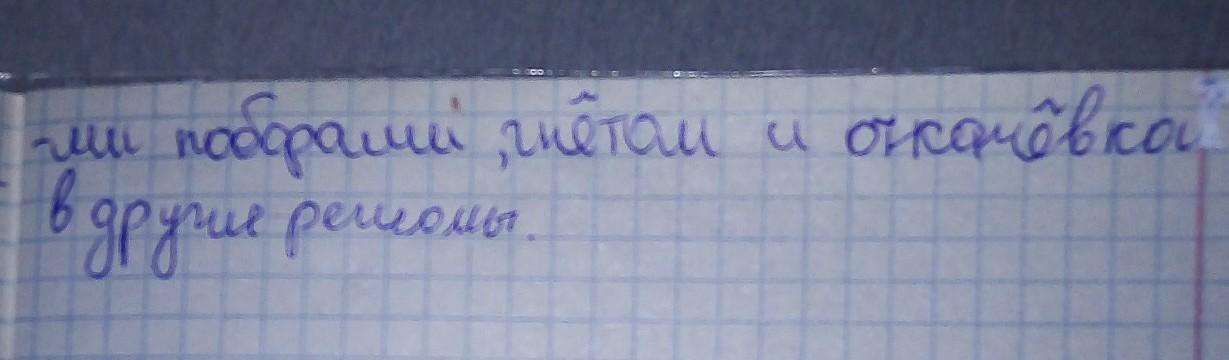 -ми поборами, гнётом и откочёвкой
в другие регионы.